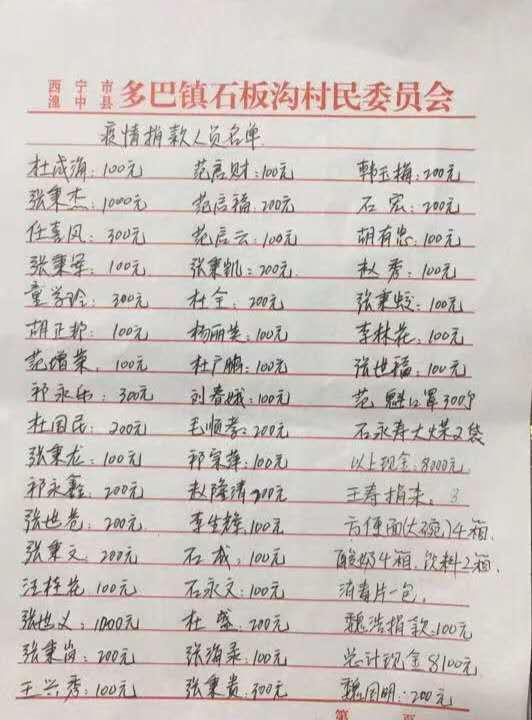 西宁市
湟中县 多巴镇石板沟村民委员会
疫情捐款人员名单
杜成海:100元 范启财:100元 韩玉梅:200元
张秉杰:1000元 范启福:200元 石宏:200元
任喜凤:300元 范启云:100元 胡有忠:100元
张秉军:100元 张秉凯:200元 赵秀:100元
童学玲:300元 杜全:200元 张秉蛟:100元
胡正邦:100元 杨丽英:100元 李林花:100元
范增荣:100元 杜广鹏:100元 张世福:100元
祁永乐:300元 刘春娥:100元 范魁口罩300个
杜国民:200元 毛顺孝:200元 石永寿大煤2袋
张秉龙:100元 祁宗萍:100元 以上现金:8000元
祁永鑫:200元 赵隆清:200元 王寿捐来:
张世卷:200元 李生辉:100元 方便面(大碗)4箱
张秉文:200元 石成:100元 酸奶4箱、饮料2箱、
汪桂花:100元 石永文:100元 消毒片一包,
张世义:1000元 杜:200元 魏浩捐款:100元
张秉岗:200元 张海录:100元 总计现金8100元
王兴秀:100元 张秉贵:300元 魏国明:200元
第 页